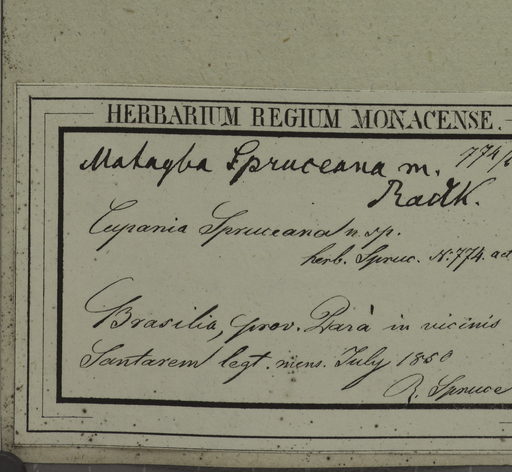 HERBARIUM REGIUM MONACENSE.
Matayba Spruceana m. 774/
Radlk.
Cupania Spruceana n. sp.
herb. Spruc. N. 774. act
Brasilia, prov. Pará in vicinis
Santarem legt. mens. July 1850
R. Spruce